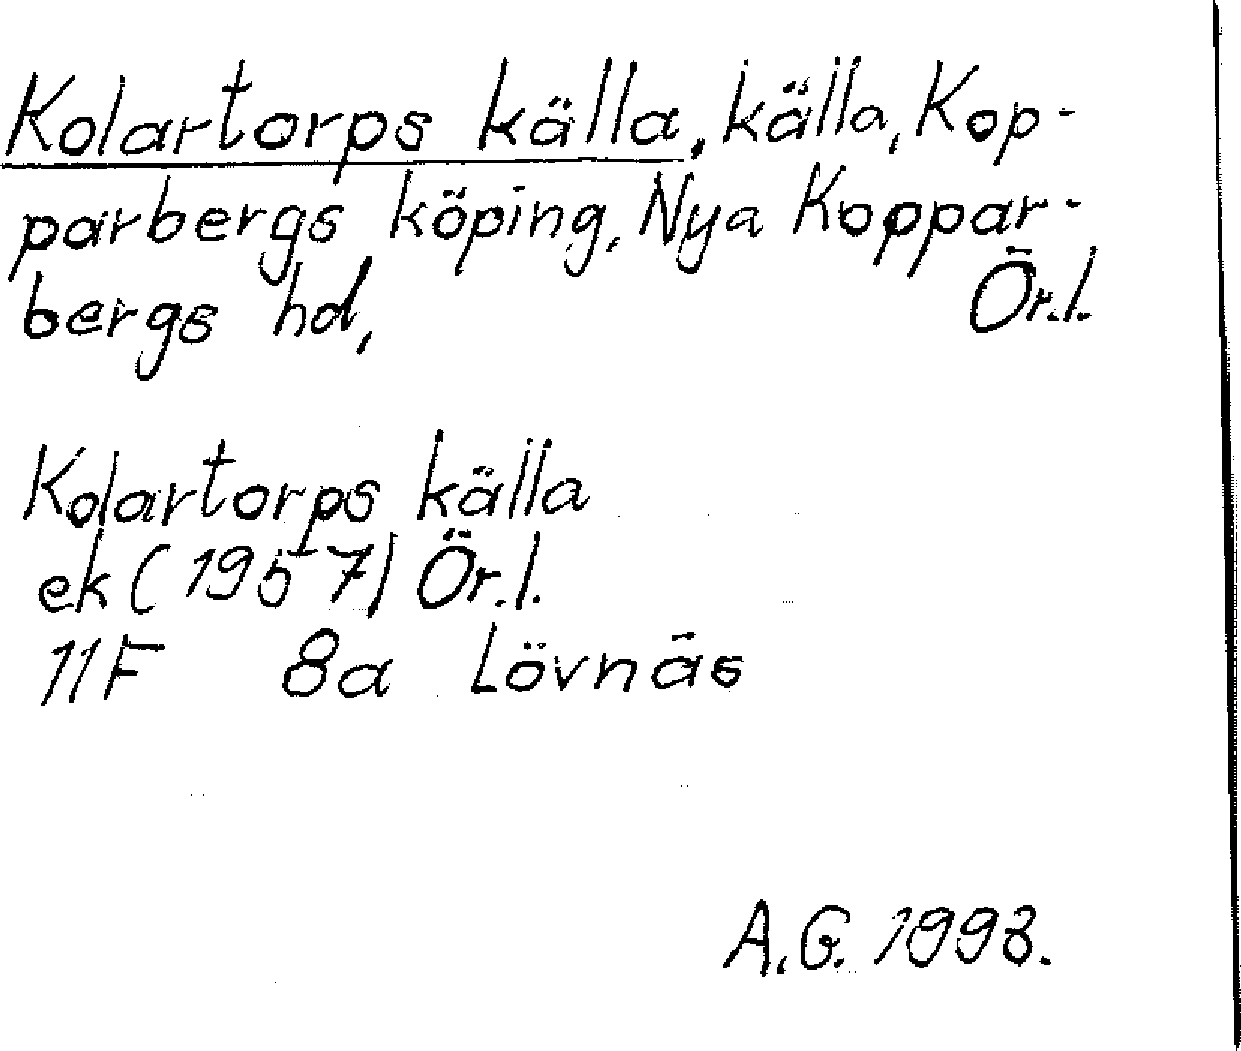 Kolartorps källa, källa, Kop-
parbergs köping, Nya Koppar-
bergs hd, Ör.l.
Kolartorps källa
ek (1957) Ör.l.
11F 8a Lövnäs
A.G. 1993.